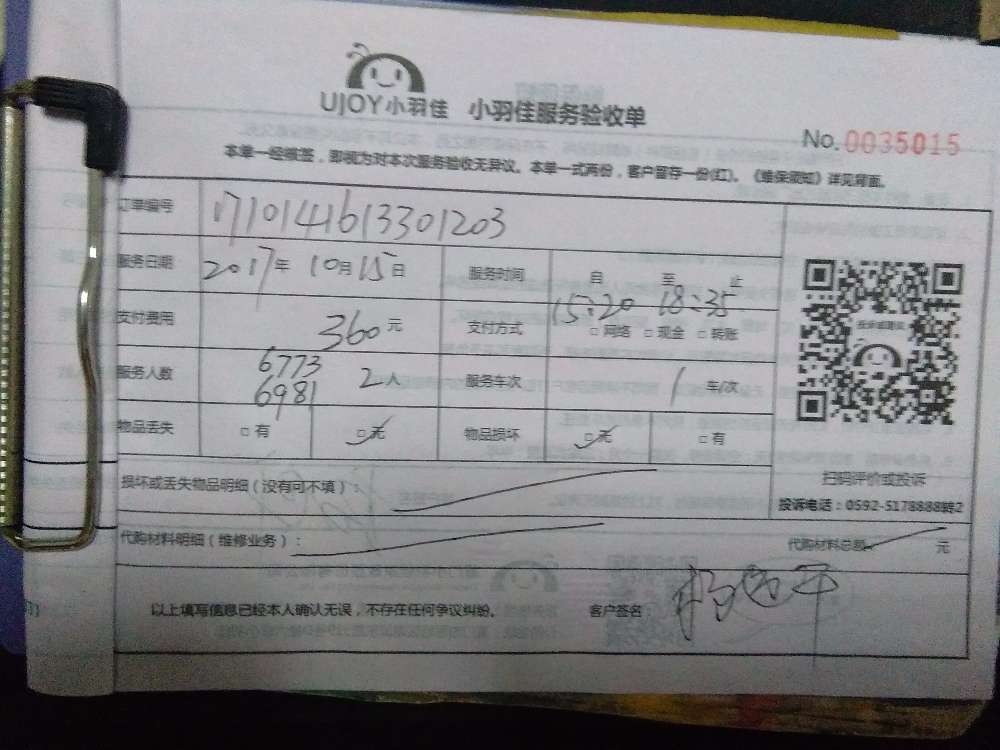 UJOY小羽佳 小羽佳服务验收单
No.0035015
本单一经缴签，即视为对本次服务验收无异议。本单一式两份，客户留存一份(红)。《维保须知》详见背面。
订单编号 1710141613301203
服务日期 2017年 10月15日 服务时间 自 15:20 至 18:35 止
支付费用 360元 支付方式 □网络 □现金 □转账
服务人数 6773 6981 2人 服务车次 1 车/次
物品丢失 □有 □无 物品损坏 □无 □有
损坏或丢失物品明细（没有可不填）：
扫码评价或投诉
投诉电话：0592-5178888转2
代购材料明细（维修业务）： 代购材料总额 元
以上填写信息已经本人确认无误，不存在任何争议纠纷。 客户签名